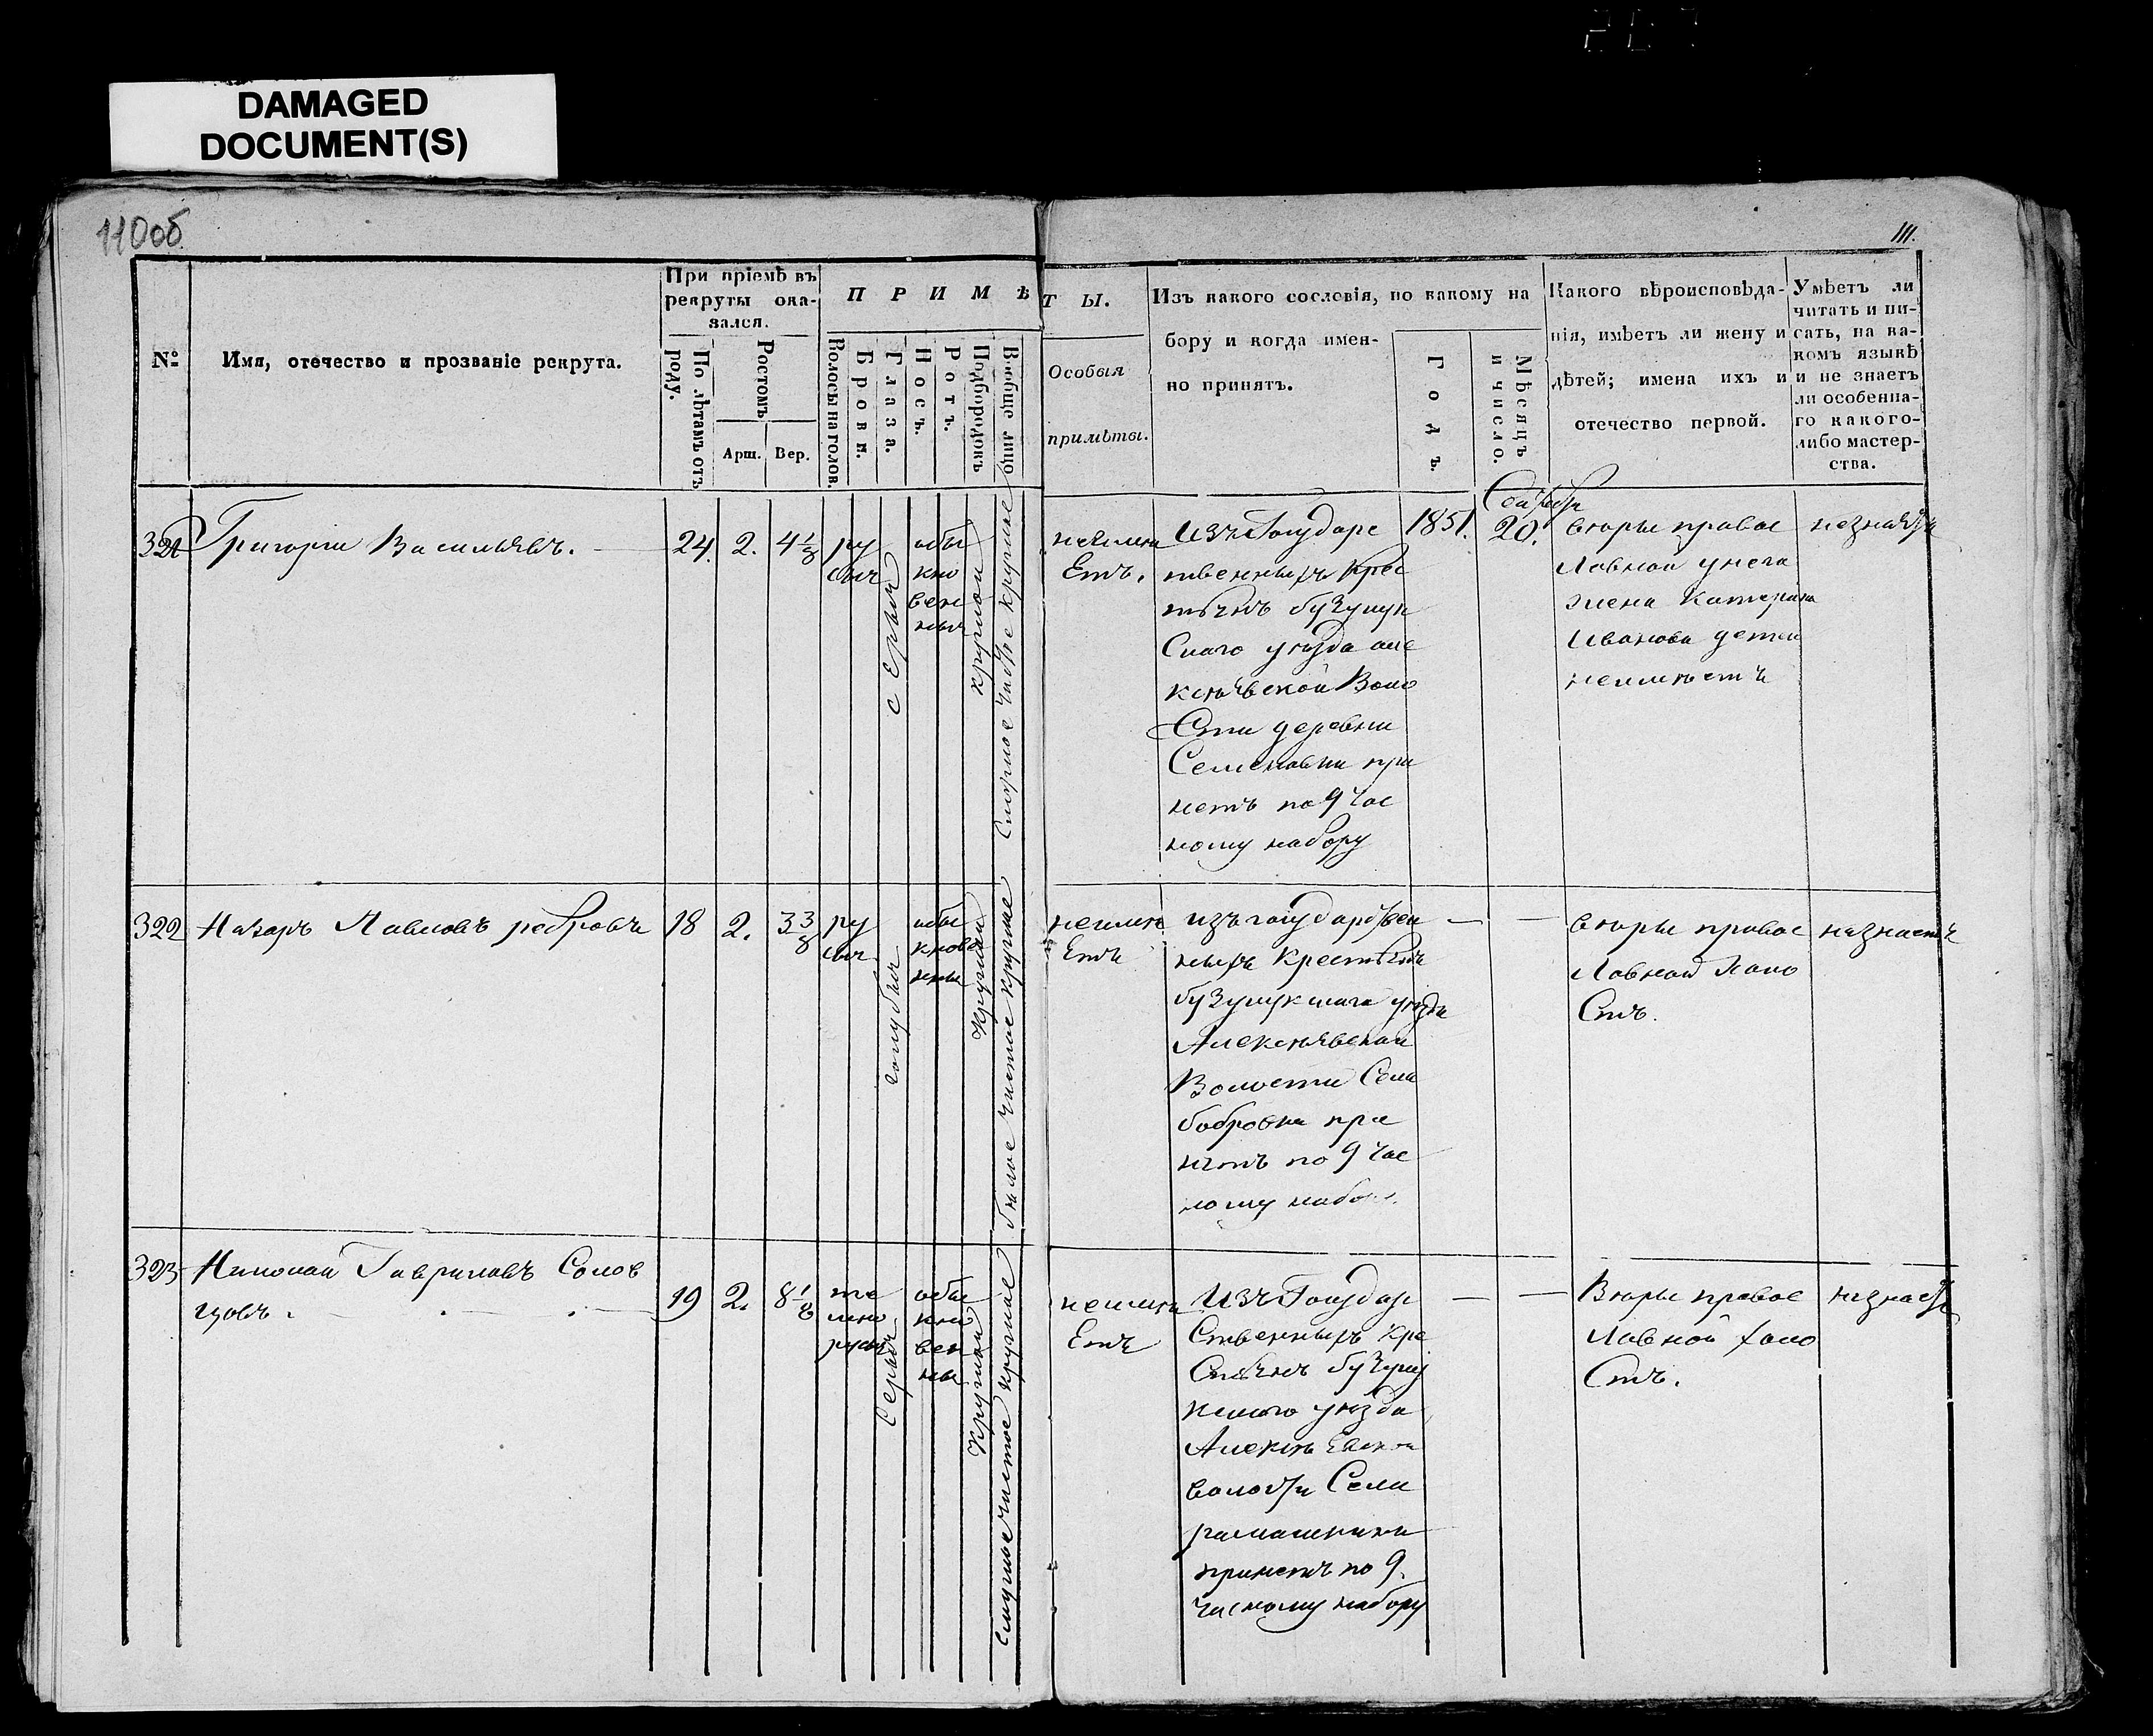 DAMAGED
DOCUMENT(S)
110об
111.
№
Имя, отечество и прозваніе рекрута.
При пріемѣ въ
рекруты ока-
зался.
По лѣтамъ отъ
роду.
Ростомъ
Арш. Вер.
ПРИМѢТЫ.
Волосы на голов.
Брови.
Глаза.
Носъ.
Ротъ.
Подбородокъ
Вообще лицо
Особыя
примѣты.
Изъ какого сословія, по какому на
бору и когда имен-
но принятъ.
Годъ.
Мѣсяцъ
и число.
Какого вѣроисповѣда-
нія, имѣетъ ли жену и
дѣтей; имена ихъ и
отечество первой.
Умѣетъ ли
читать и пи-
сать, на ка-
комъ языкѣ
и не знаетъ
ли особенна-
го какого-
либо мастер-
ства.
321
Григории Васильевъ.
24. 2. 4 1/8
ру
сыя
серыя
обы
кно
вен
ныя
круглои
смуглое чистое круглое
неимѣ
Етъ.
Изъ Государс
твенныхъ крес
тьянъ бузулук
Скаго уѣзда але
ксѣевской Воло
Сти деревни
Семеновки при
нетъ по 9 час
ному набору
1851.
20.
вѣры правос
лавной у него
жена Катерина
Иванова детеи
неимѣетъ
незнаетъ
322
Назаръ Павловъ ребровъ
18 2. 3 3/8
ру
сыя
голубыя
обы
кнове
нны
круглои
бѣлое чистое круглое
неимѣ
Етъ
изъ государствен
ныхъ Крестьянъ
бузулукскаго уѣзда
Алексѣевской
Волости Села
бобровки при
нятъ по 9 час
ному набо
— —
вѣры правос
лавной холо
Стъ.
незнаетъ
323
Николаи Гавриловъ Солов
цовъ.
19 2. 8 1/8
те
мно
русыя
Серыя
обы
кно
вен
ны
круглои
смуглое чистое круглое
неимѣ
Етъ
Изъ Государ
Ственныхъ кре
Стьянъ бузулу
кскаго уѣзда
волости Села
ромашкина
принетъ по 9.
часному набору
— —
Вѣры правос
лавной холо
Стъ.
незнаетъ